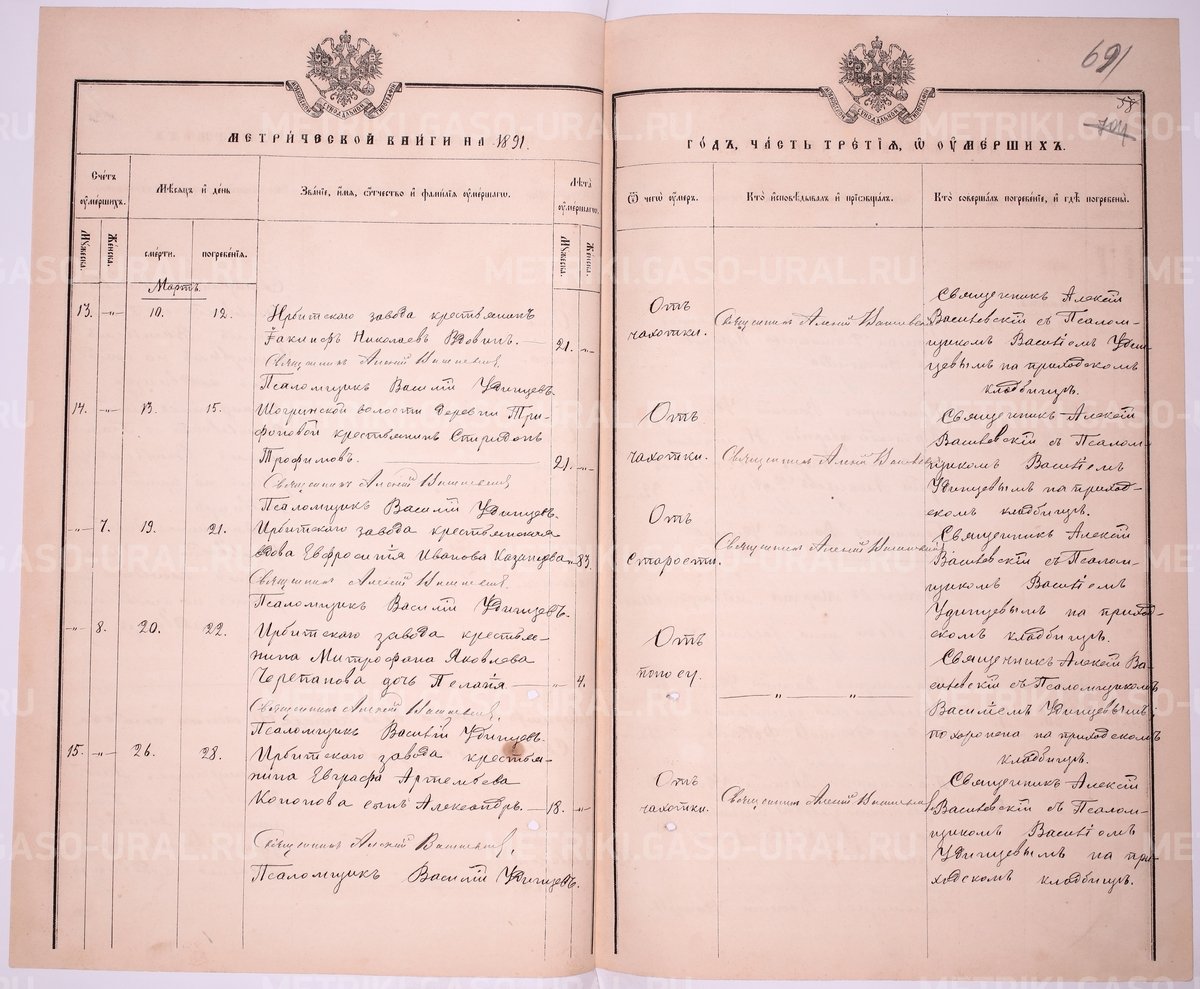 691
58
МЕТРИЧЕСКОЙ КНИГИ НА 1891
ГОДЪ, ЧАСТЬ ТРЕТІЯ, Ѿ ОУМЕРШИХЪ.
Счетъ оумершихъ.
Мѣсяцъ и день
Званіе, имя, отчество и фамилія оумершаго.
Лѣта оумершаго.
Ѿ чего оумеръ.
Кто исповѣдывалъ и пріобщалъ.
Кто совершалъ погребеніе, и гдѣ погребены.
Мужеска.
Женска.
смерти.
погребенія.
Мужеска.
Женска.
Мартъ.
13. -„- 10. 12.
Ирбитскаго завода крестьянинъ
Іакинѳъ Николаевъ Вдовинъ. — 21. -„-
Священникъ Алексій
Псаломщикъ Василій Удинцевъ.
Отъ
чахотки.
Священникъ Алексій
Священникъ Алексій
Васильевскій съ Псалом-
щикомъ Василіемъ Удин-
цевымъ на приходскомъ
кладбищѣ.
14. -„- 13. 15.
Шогринской волости деревни Три-
фоновой крестьянинъ Спиридонъ
Трофимовъ. — 21. -„-
Священникъ Алексій
Псаломщикъ Василій Удинцевъ.
Отъ
чахотки.
Священникъ Алексій
Священникъ Алексій
Васильевскій съ Псалом-
щикомъ Василіемъ
Удинцевымъ на приход-
скомъ кладбищѣ.
-„- 7. 19. 21.
Ирбитскаго завода крестьянская
вдова Евфросинія Иванова Казанцева -„- 83.
Священникъ Алексій
Псаломщикъ Василій Удинцевъ.
Отъ
старости.
Священникъ Алексій
Священникъ Алексій
Васильевскій съ Псалом-
щикомъ Василіемъ
Удинцевымъ на приход-
скомъ кладбищѣ.
-„- 8. 20. 22.
Ирбитскаго завода крестья-
нина Митрофана Яковлева
Черепанова дочь Пелагія — -„- 4.
Священникъ Алексій
Псаломщикъ Василій Удинцевъ.
Отъ
поносу.
— „ — „ —
Священникъ Алексій Ва-
сильевскій съ Псаломщикомъ
Василіемъ Удинцевымъ;
похоронена на приходскомъ
кладбищѣ.
15. -„- 26. 28.
Ирбитскаго завода крестья-
нина Евграфа Артемьева
Кононова сынъ Александръ. — 18. -„-
Священникъ Алексій
Псаломщикъ Василій Удинцевъ.
Отъ
чахотки.
Священникъ Алексій
Священникъ Алексій
Васильевскій съ Псалом-
щикомъ Василіемъ
Удинцевымъ на при-
ходскомъ кладбищѣ.
METRIKI.GASO-URAL.RU